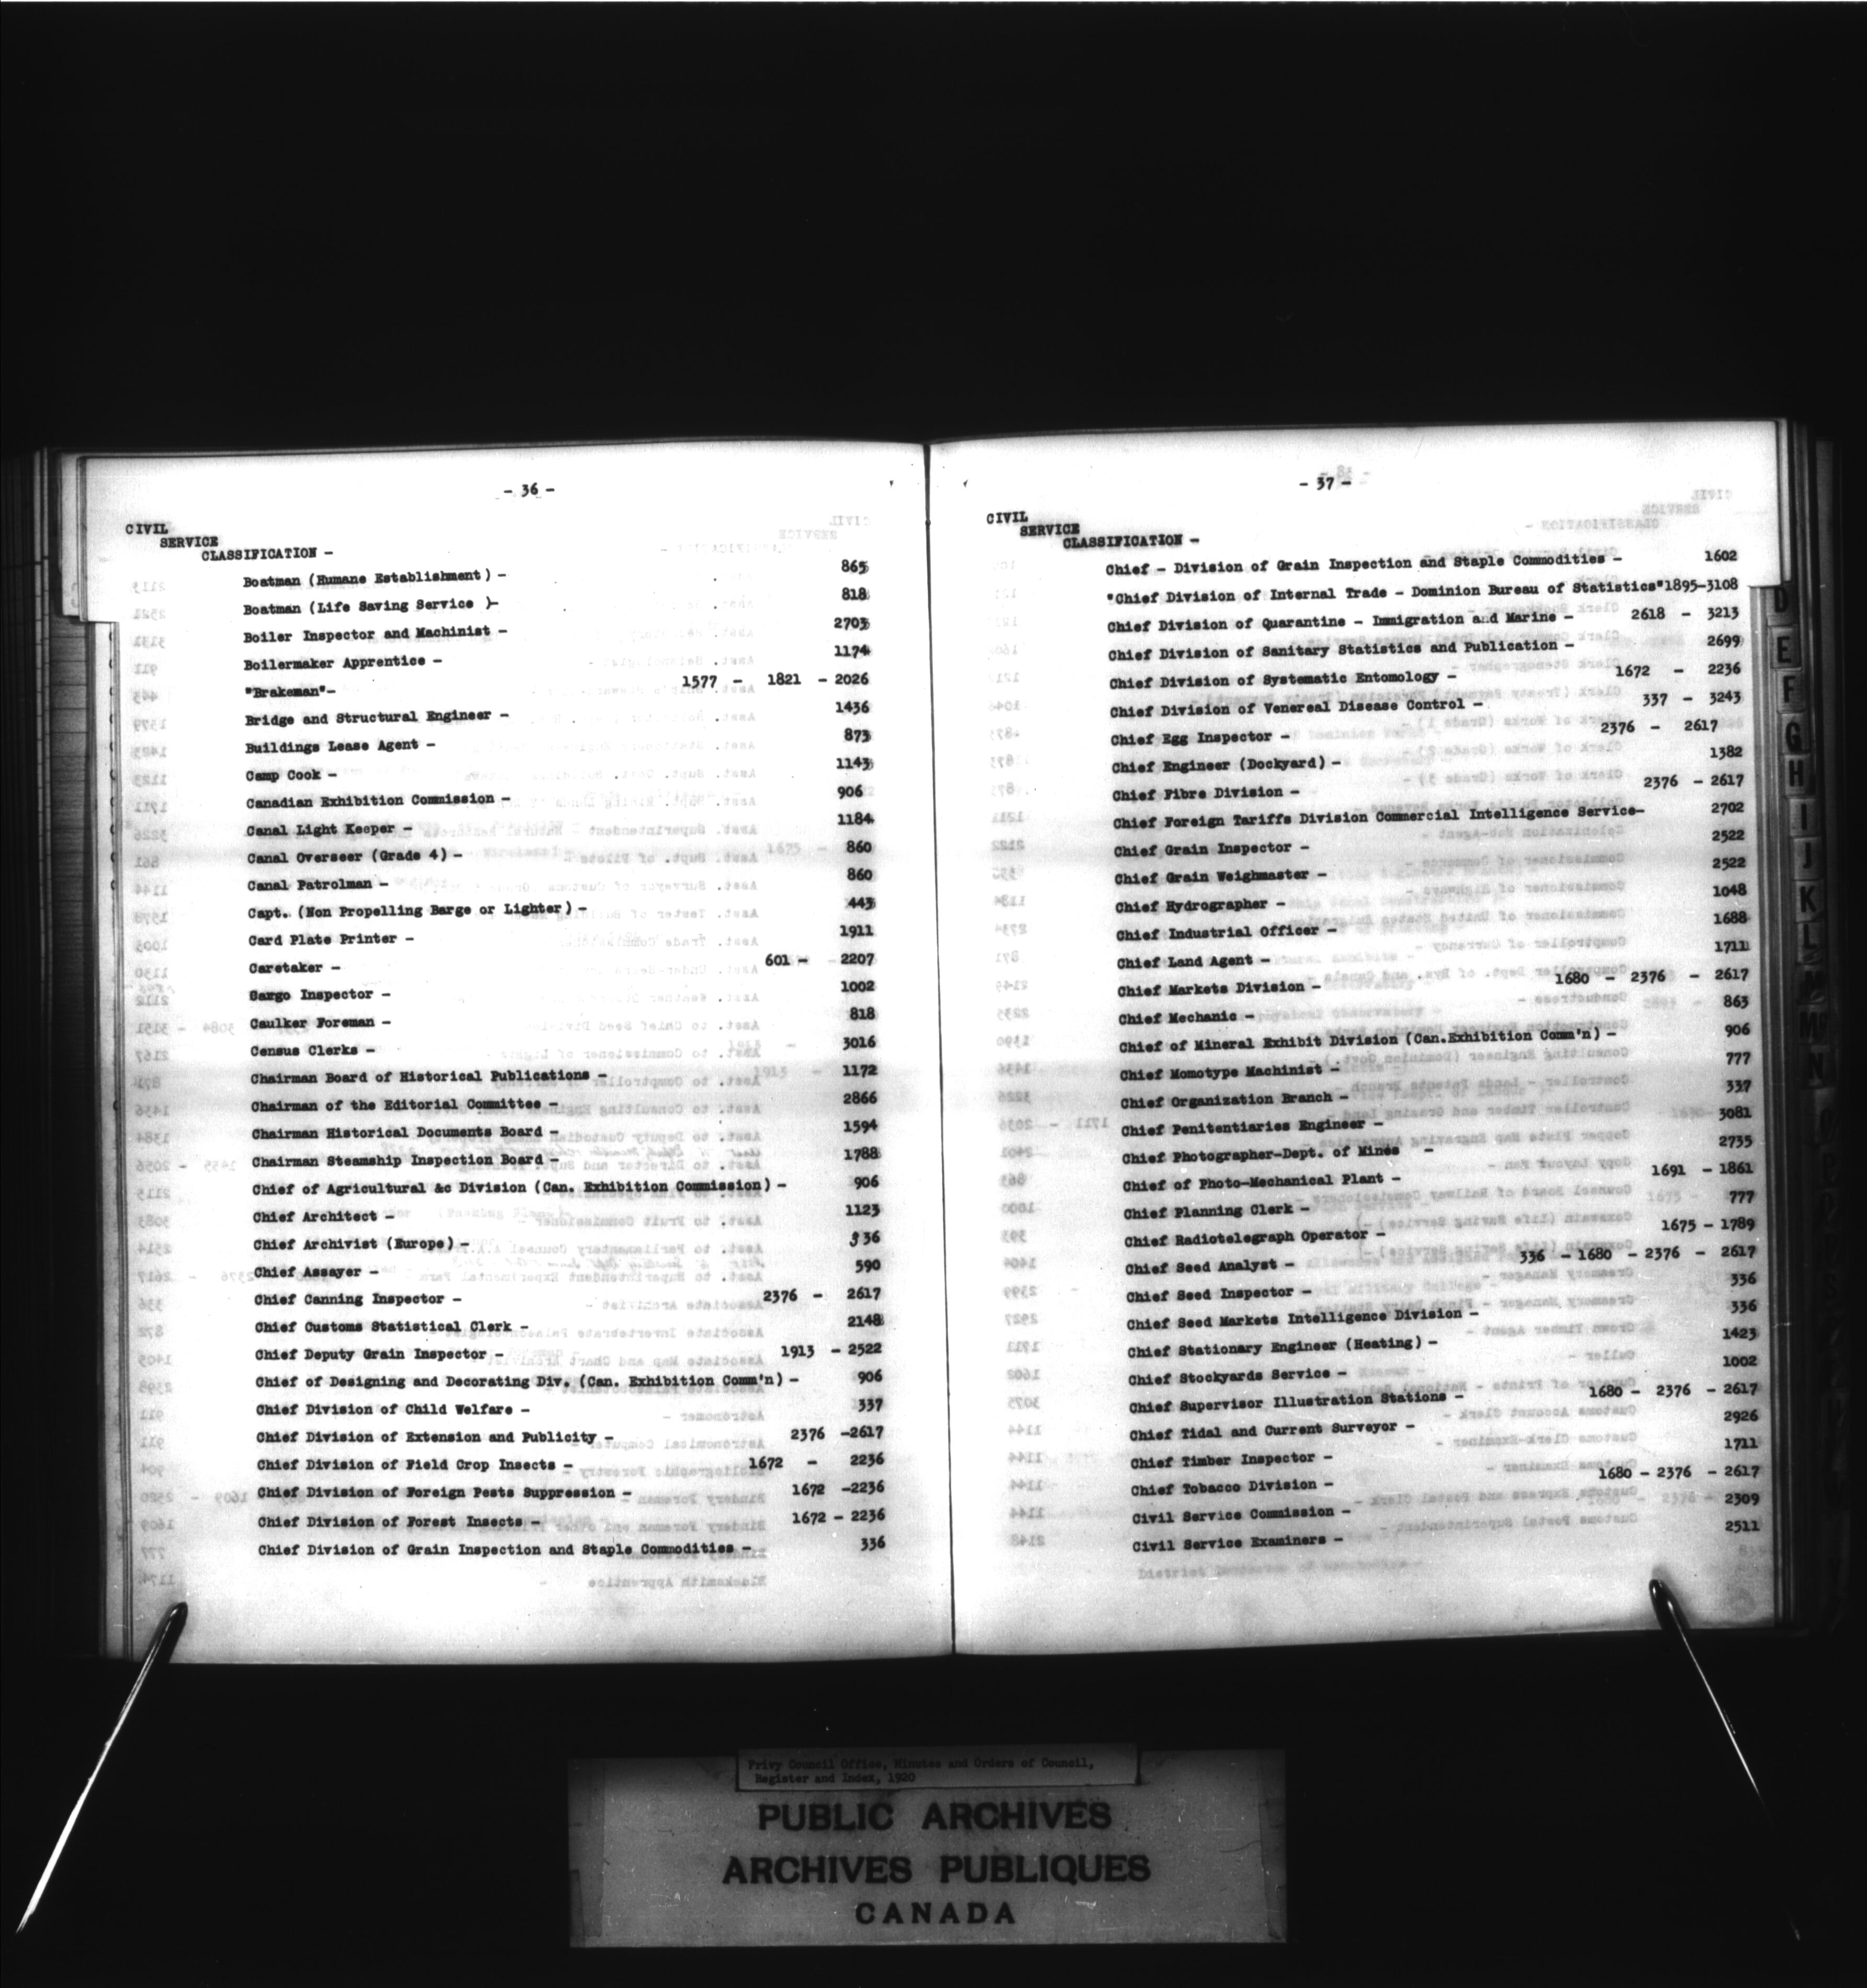 - 36 -
CIVIL
SERVICE
CLASSIFICATION -
Boatman (Humane Establishment) - 865
Boatman (Life Saving Service )- 818
Boiler Inspector and Machinist - 2703
Boilermaker Apprentice - 1174
"Brakeman"- 1577 - 1821 - 2026
Bridge and Structural Engineer - 1436
Buildings Lease Agent - 873
Camp Cook - 1143
Canadian Exhibition Commission - 906
Canal Light Keeper - 1184
Canal Overseer (Grade 4) - 860
Canal Patrolman - 860
Capt. (Non Propelling Barge or Lighter) - 443
Card Plate Printer - 1911
Caretaker - 601 - 2207
Cargo Inspector - 1002
Caulker Foreman - 818
Census Clerks - 3016
Chairman Board of Historical Publications - 1172
Chairman of the Editorial Committee - 2866
Chairman Historical Documents Board - 1594
Chairman Steamship Inspection Board - 1788
Chief of Agricultural &c Division (Can. Exhibition Commission) - 906
Chief Architect - 1123
Chief Archivist (Europe) - 336
Chief Assayer - 590
Chief Canning Inspector - 2376 - 2617
Chief Customs Statistical Clerk - 2148
Chief Deputy Grain Inspector - 1913 - 2522
Chief of Designing and Decorating Div. (Can. Exhibition Comm'n) - 906
Chief Division of Child Welfare - 337
Chief Division of Extension and Publicity - 2376 -2617
Chief Division of Field Crop Insects - 1672 - 2236
Chief Division of Foreign Pests Suppression - 1672 -2236
Chief Division of Forest Insects - 1672 - 2236
Chief Division of Grain Inspection and Staple Commodities - 336
- 37 -
CIVIL
SERVICE
CLASSIFICATION -
Chief - Division of Grain Inspection and Staple Commodities - 1602
"Chief Division of Internal Trade - Dominion Bureau of Statistics"1895-3108
Chief Division of Quarantine - Immigration and Marine - 2618 - 3213
Chief Division of Sanitary Statistics and Publication - 2699
Chief Division of Systematic Entomology - 1672 - 2236
Chief Division of Venereal Disease Control - 337 - 3243
Chief Egg Inspector - 2376 - 2617
Chief Engineer (Dockyard) - 1382
Chief Fibre Division - 2376 - 2617
Chief Foreign Tariffs Division Commercial Intelligence Service- 2702
Chief Grain Inspector - 2522
Chief Grain Weighmaster - 2522
Chief Hydrographer - 1048
Chief Industrial Officer - 1688
Chief Land Agent - 1711
Chief Markets Division - 1680 - 2376 - 2617
Chief Mechanic - 863
Chief of Mineral Exhibit Division (Can.Exhibition Comm'n) - 906
Chief Momotype Machinist - 777
Chief Organization Branch - 337
Chief Penitentiaries Engineer - 3081
Chief Photographer-Dept. of Mines - 2735
Chief of Photo-Mechanical Plant - 1691 - 1861
Chief Planning Clerk - 777
Chief Radiotelegraph Operator - 1675 - 1789
Chief Seed Analyst - 336 - 1680 - 2376 - 2617
Chief Seed Inspector - 336
Chief Seed Markets Intelligence Division - 336
Chief Stationary Engineer (Heating) - 1423
Chief Stockyards Service - 1002
Chief Supervisor Illustration Stations - 1680 - 2376 - 2617
Chief Tidal and Current Surveyor - 2926
Chief Timber Inspector - 1711
Chief Tobacco Division - 1680 - 2376 - 2617
Civil Service Commission - 2309
Civil Service Examiners - 2511
D
E
F
G
H
I
J
K
L
M
N
Privy Council Office, Minutes and Orders of Council,
Register and Index, 1920
PUBLIC ARCHIVES
ARCHIVES PUBLIQUES
CANADA